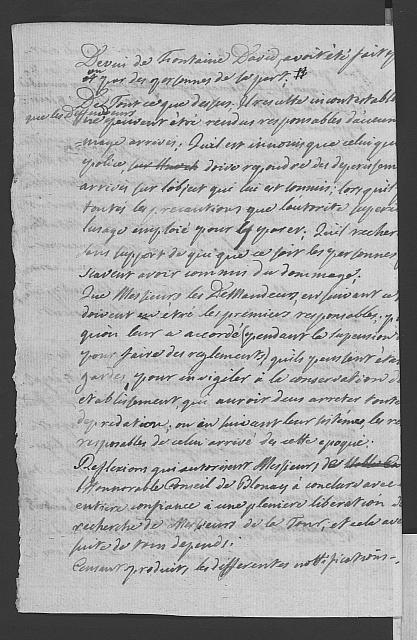 Devin de Fontaine David, avoit été fait p
ou par des personnes de sa part. #
De Tout ce que dessus. Il resulte incontestabl
que les Deffendeurs ne peuvent être rendus responsables d'aucun
mage arrivés, Qu'il est innouis que celui qui
police, doive repondre des
arrivés sur l'object qui lui est commis; lorsqu'il
toutes les precautions que l'autorité superieu
l'usage emploié pour y poser. Qu'il recher
sans support de qui que ce soit les personnes
savent avoir commis du dommage.
Que Messieurs les Demandeurs en suivant ce
doivent en être les premiers responsables, p
qu'on leur a accordé (pendant la supension
pour faire des reglements) qu'ils pensent être
gardes, pour invigiler à la conservation d
etablissement, qui auroit deus arreter toute
depredation, ou en suivant leur sistème, les re
responsables de celui arrivé dès cette epoque.
Reflexions qui autorisent Messieurs de
l'Honnorable Conseil de Blonay à conclure avec
entiere confiance à une pleniere liberation d
recherche de Messieurs de la Tour, et cela av
suite de tous depends.
Censant produits les differentes nottifications.